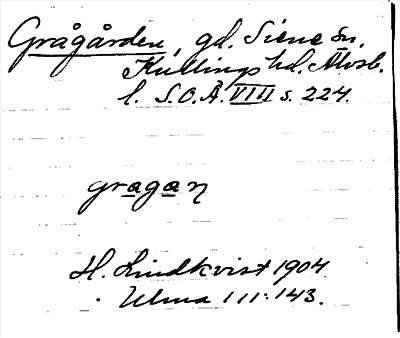 Grågården, gd. Siene sn,
Kullings hd. Älvsb.
l. S.O.Ä. VIII s. 224.
gragaŋ
H. Lindkvist 1904
Ulma 111:143.